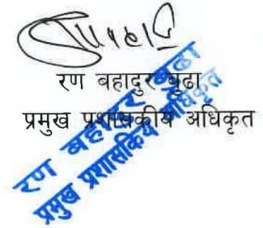 रण बहादुर बुढा
प्रमुख प्रशासकीय अधिकृत
रण बहादुर बुढा
प्रमुख प्रशासकिय अधिकृत